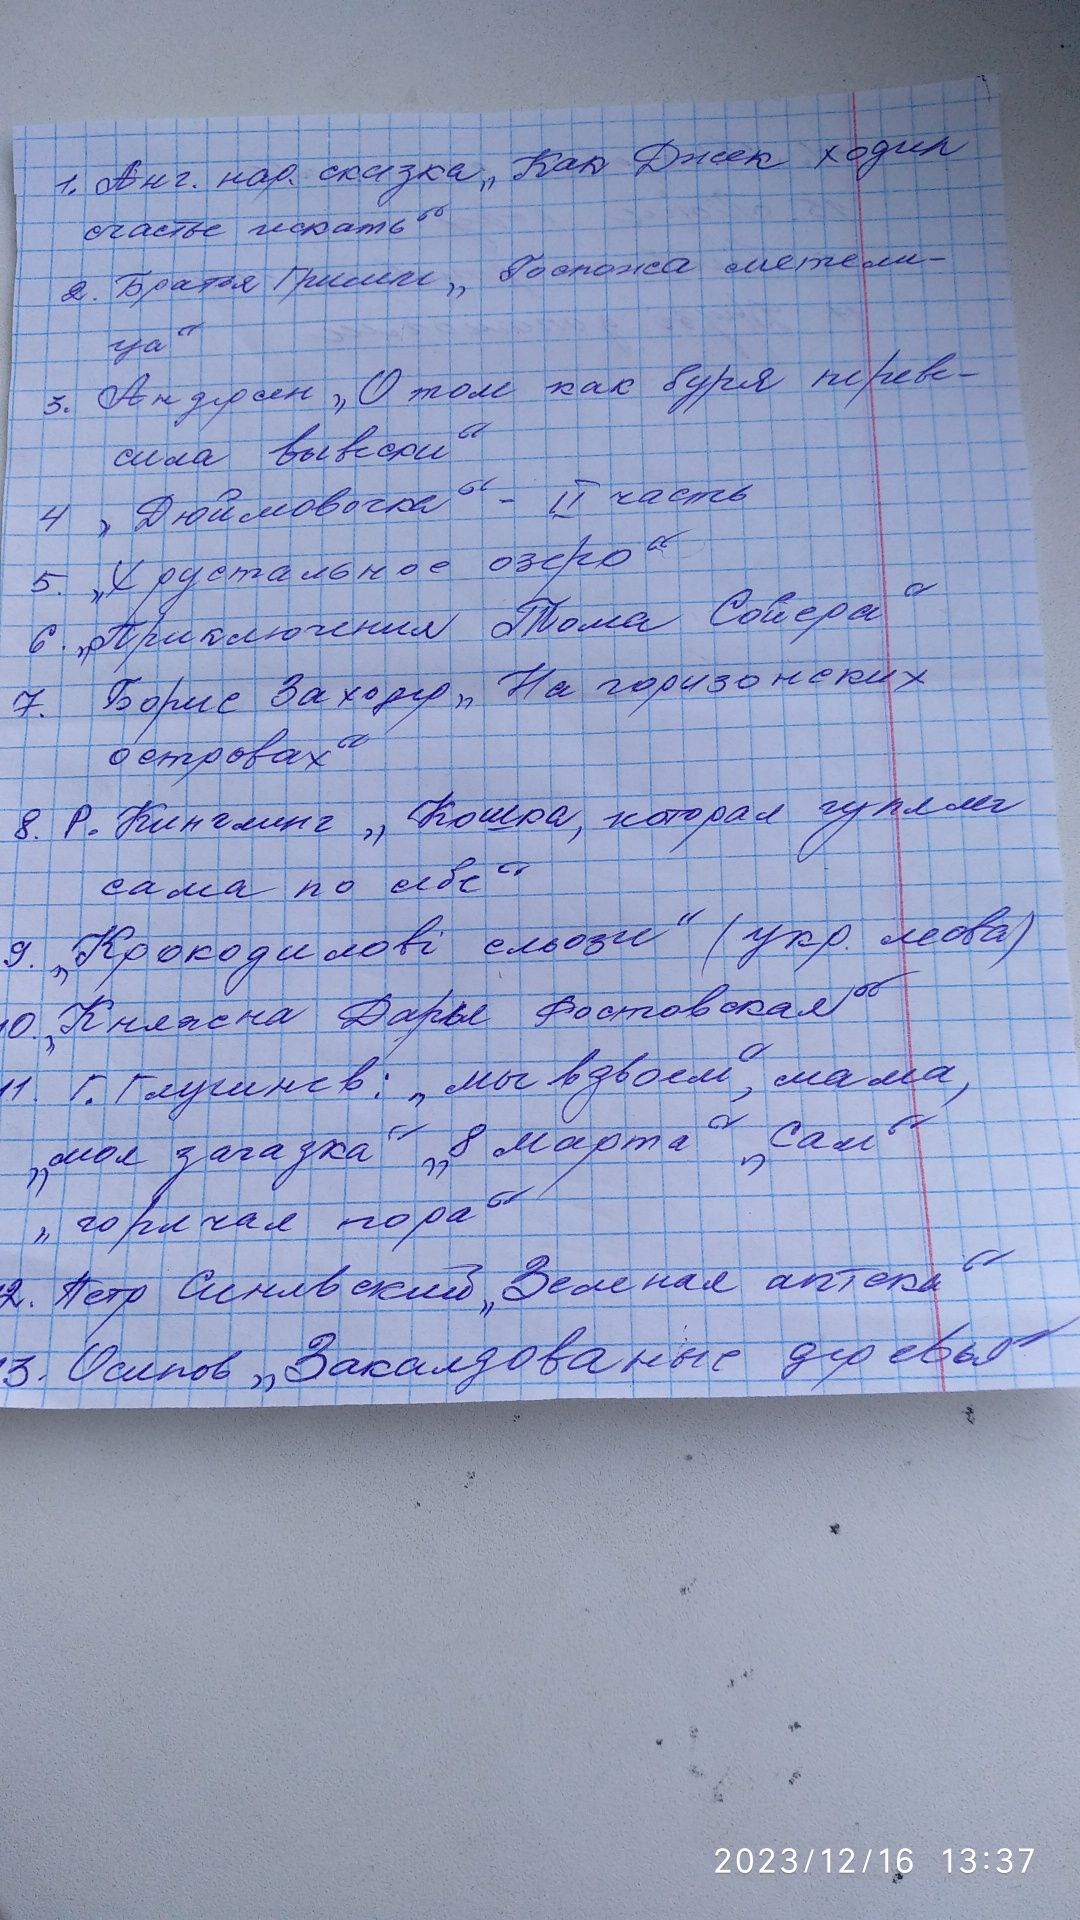 1. Анг. нар. сказка „Как Джек ходил
счастье искать“
2. Братья Гримм „Госпожа метели-
ца“
3. Андерсен „О том как буря переве-
сила вывески“
4 „Дюймовочка“ - II часть
5. „Хрустальное озеро“
6. „Приключения Тома Сойера“
7. Борис Заходер „На горизонских
островах“
8. Р. Кинглинг „Кошка, которая гуляла
сама по себе“
9. „Крокодилові сльози“ (укр. мова)
10. „Княжна Дарья Ростовская“
11. Г. Глушнев: „мы вдвоем“, мама,
„моя загадка“ „8 марта“ „Сам“
„горячая пора“
12. Петр Синявский „Зеленая аптека“
13. Осипов „Закалдованые деревья“
2023/12/16 13:37